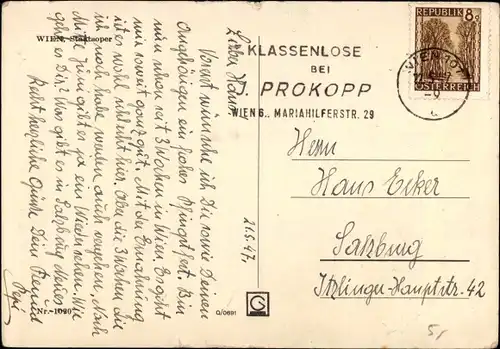 WIEN, Staatsoper
Nr. 1020
Lieber Hans!
Vorerst wünsche ich Dir sowie Deinen
Angehörigen ein frohes Pfingstfest. Bin
nun schon seit 3 Wochen in Wien. Es geht
mir soweit ganz gut. Mit der Ernährung
ist es wohl schlecht hier. Aber die 3 Wochen die
ich noch habe werden auch vergehen. Nach
Mitte Juni gibt es ja ein Wiedersehen. Wie
geht es Dir? Was gibt es in Salzburg Neues?
Recht herzliche Grüße Dein Freund
21.5.47.
Q/0691
KLASSENLOSE
BEI
J. PROKOPP
WIEN 6., MARIAHILFERSTR. 29
WIEN 101
REPUBLIK 8g
ÖSTERREICH
Herrn
Hans Ecker
Salzburg
Itzlinger-Hauptstr. 42
5,-